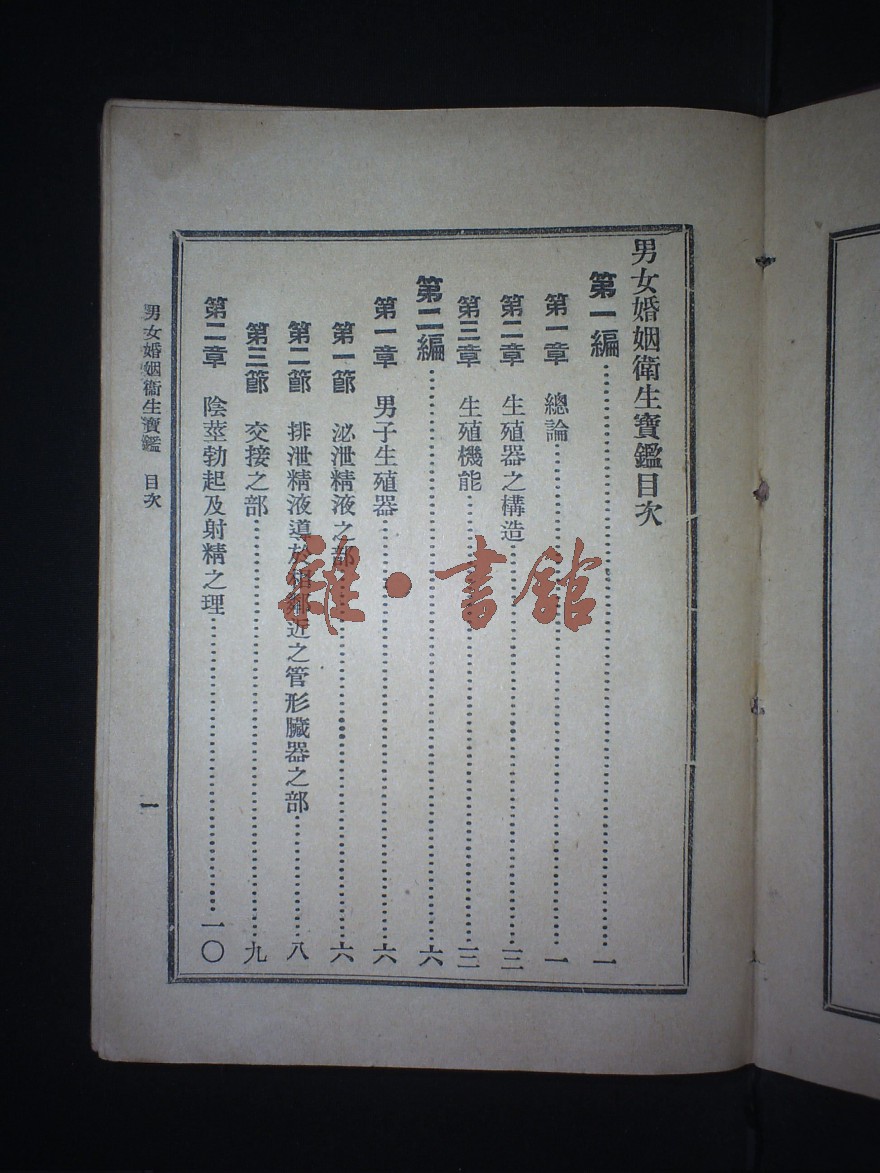 男女婚姻衛生寶鑑目次
第一編……一
第一章　總論……一
第二章　生殖器之構造……三
第三章　生殖機能……三
第二編……六
第一章　男子生殖器……六
第一節　泌泄精液之部……六
第二節　排泄精液導於近之管形臟器之部……八
第三節　交接之部……九
第二章　陰莖勃起及射精之理……一〇
男女婚姻衛生寶鑑　目次　一
雜·書館